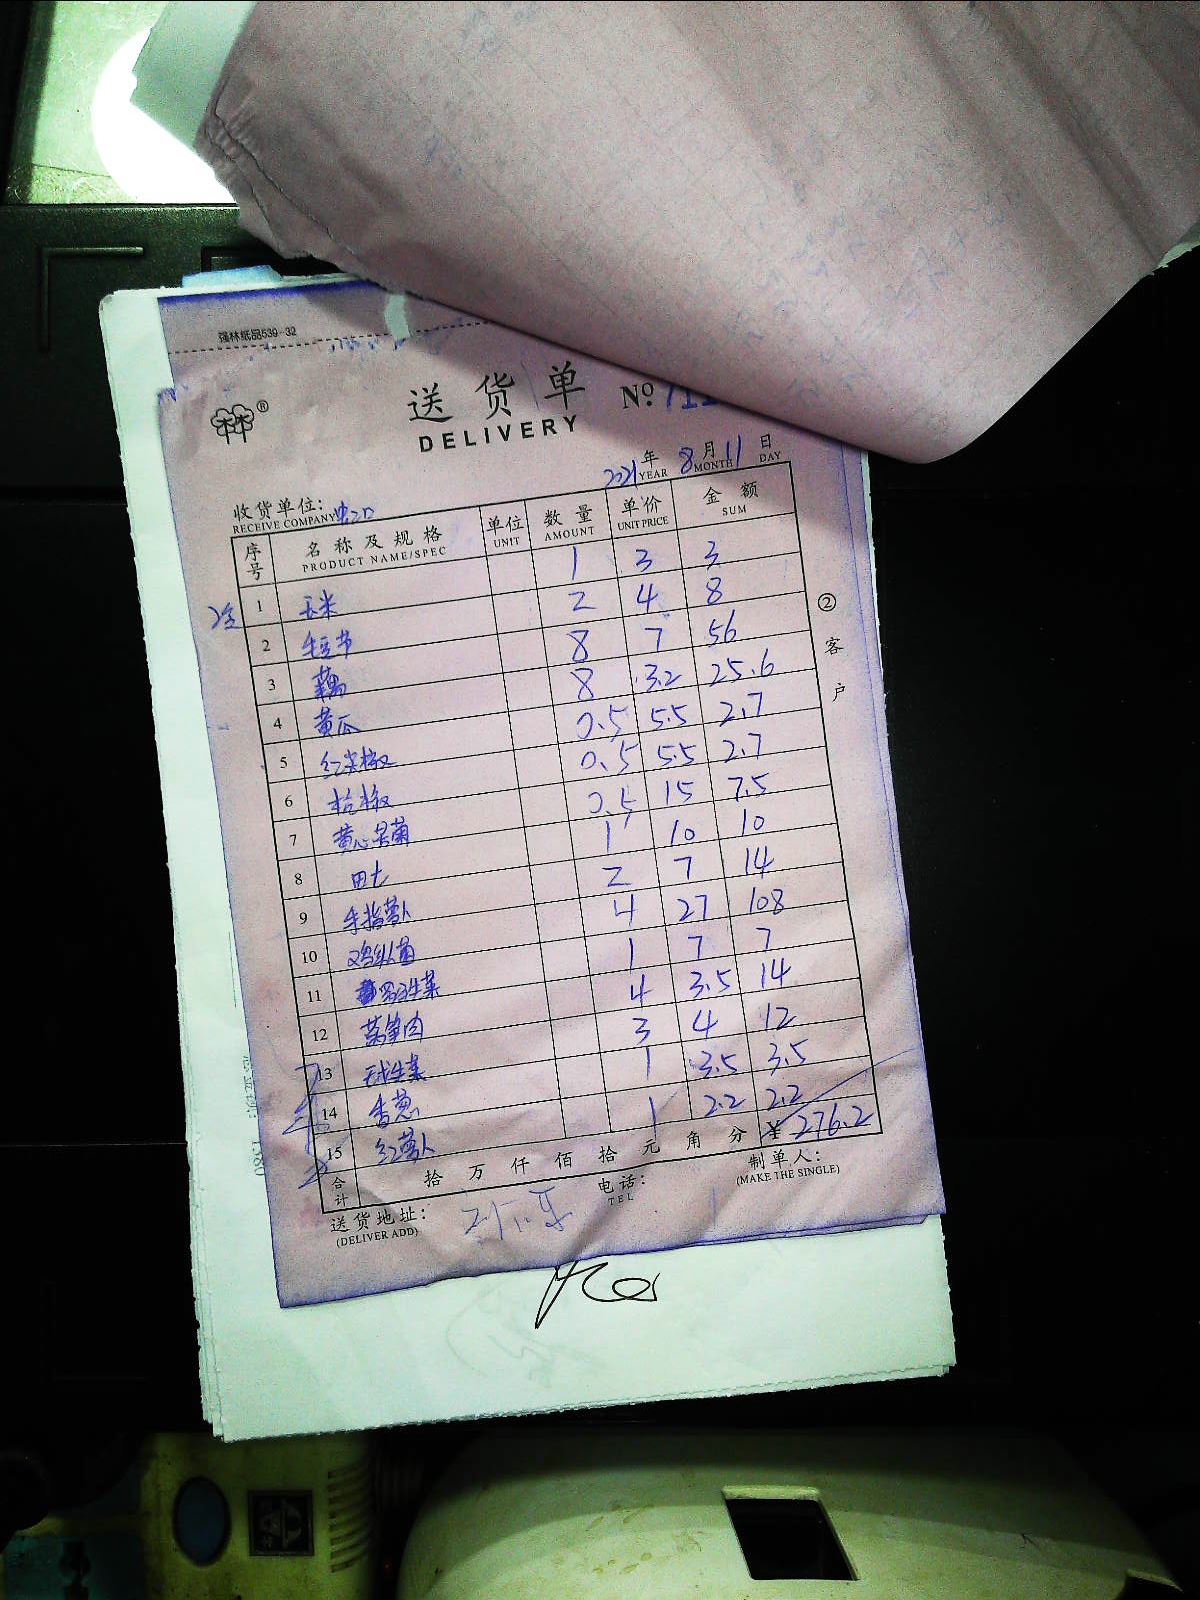 强林纸品539-32
林林®
送货单 № 711
DELIVERY
2021年 8月 11日
YEAR MONTH DAY
收货单位:
RECEIVE COMPANY
序号 名称及规格 单位 数量 单价 金额
PRODUCT NAME/SPEC UNIT AMOUNT UNIT PRICE SUM
1 玉米 1 3 3
2 毛豆节 2 4 8
3 藕 8 7 56
4 黄瓜 8 3.2 25.6
5 红尖椒 0.5 5.5 2.7
6 桔椒 0.5 5.5 2.7
7 黄心 0.5 15 7.5
8 田七 1 10 10
9 手指萝卜 2 7 14
10 鸡纵菌 4 27 108
11 罗马生菜 1 7 7
12 莴笋肉 4 3.5 14
13 球生菜 3 4 12
14 香葱 1 3.5 3.5
15 红萝卜 1 2.2 2.2
合计 拾 万 仟 佰 拾 元 角 分 ¥ 276.2
②客户
送货地址: 电话: 制单人:
(DELIVER ADD) TEL (MAKE THE SINGLE)